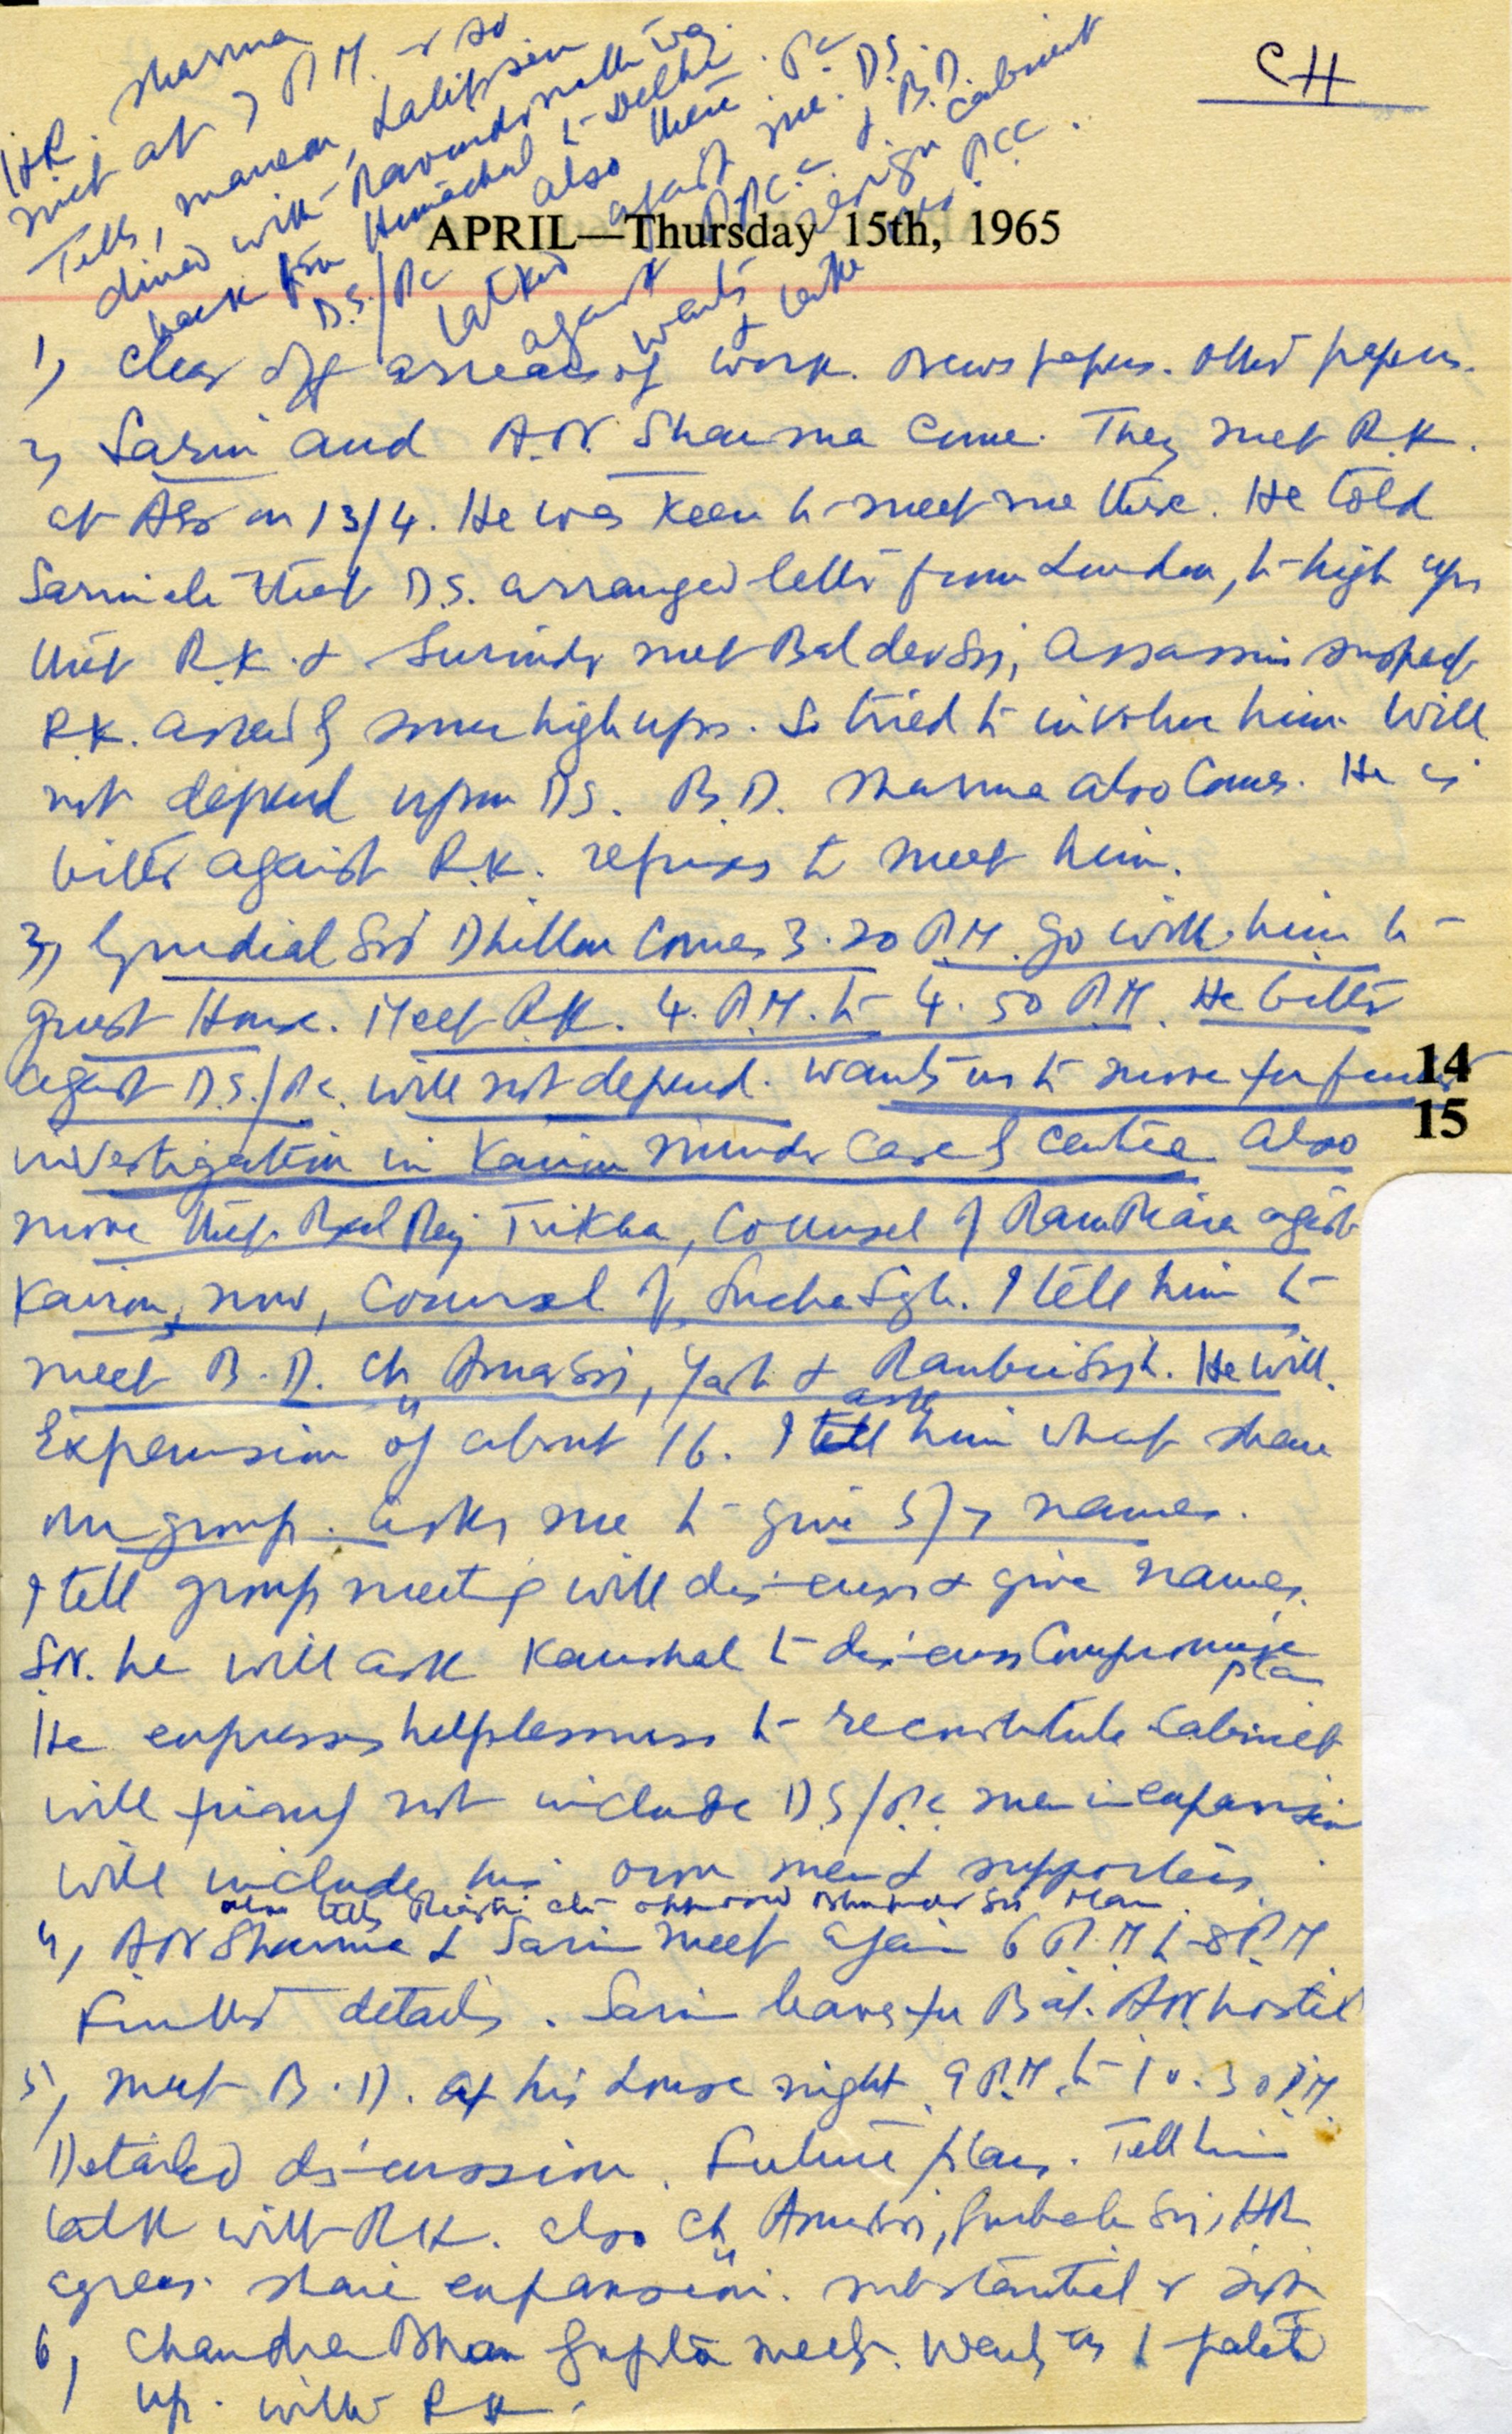 CH
H.R. Sharma
met at 7 P.M. & so
Tells, manan, Lalifsen
dined with Ravinder
back from Himachal to Delhi
D.S./Pc also there. Pc
talked against me. D.S.
against P.P.C.C. & B.D.
wants resign cabinet
& take over PCC.
APRIL—Thursday 15th, 1965
1) Clear off arrears of work. Newspapers. Other papers.
2) Sarin and A.N. Sharma come. They met R.K.
at Asr on 13/4. He was keen to meet me there. He told
Sarin etc that D.S. arranged letter from London, to high ups
that R.K. & Surinder met Baldev Sgh, assassin suspect
R.K. asked by some high ups. So tried to involve him. Will
not depend upon DS. B.D. Sharma also comes. He is
bitter against R.K. refuses to meet him.
3) Gurdial Sgh Dhillon comes 3.20 P.M. Go with him to
guest House. Meet R.K. 4. P.M. to 4.50 P.M. He bitter
against D.S./Pc. will not depend. wants us to move for further
14
15
investigation in Kairon murder case by centre also
move that Bal Raj Trikha, Counsel of Ram Piara against
Kairon, now, Counsel of Sucha Sgh. I tell him to
meet B.D. Ch Amar Sgh, Yash & Ranbir Sgh. He will.
Expansion of about 16. I ask him what share
our group. asks me to give 5/7 names.
I tell group meeting will discuss & give names.
SN. he will ask Kaushal to discuss Compromise plan
He expresses helplessness to reconstitute Cabinet
will not include D.S/Pc men in expansion
will include his own men & supporters.
also tells opposed Bhupinder Sgh Mann
4) AN Sharma & Sarin meet again 6 P.M to 8 P.M.
Further details. Sarin leaves for Bat. AN hostel
5) meet B.D. at his house night 9 P.M. to 10.30 P.M.
Detailed discussion. Future plans. Tell him
talk with RK. also Ch Amar Sgh, Gurbak Sgh, HR
agrees. share expansion. substantial &
6) Chandra Bhan Gupta meets. Wants us to patch
up with RK.